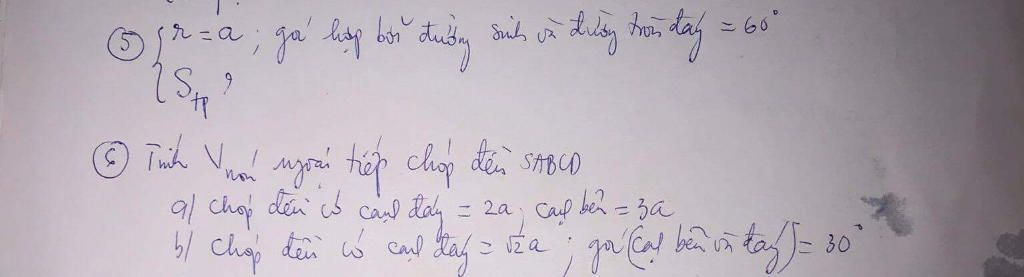 ⑤ { r = a ; góc hợp bởi đường sinh và đường tròn đáy = 60°
{ Stp ?
⑥ Tính Vnón ngoại tiếp chóp đều SABCD
a/ Chóp đều có cạnh đáy = 2a, cạnh bên = 3a
b/ Chóp đều có cạnh đáy = √2 a ; góc (cạnh bên và đáy) = 30°